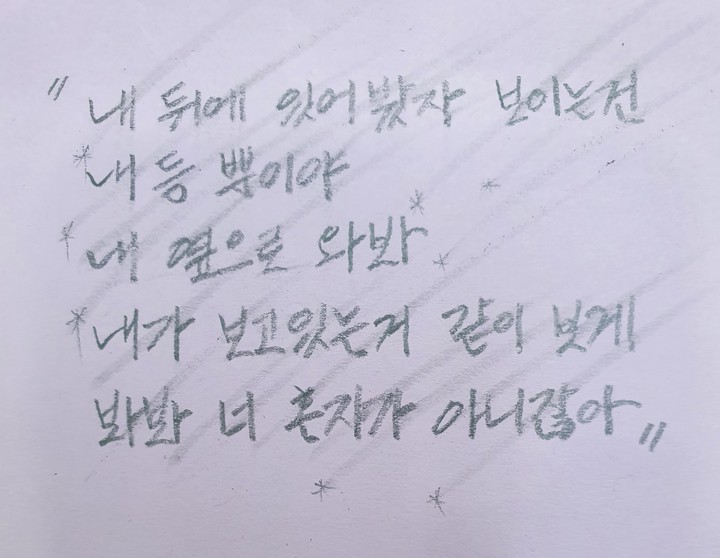 " 내 뒤에 있어봤자 보이는건
내 등 뿐이야
내 옆으로 와봐
내가 보고있는거 같이 보게
봐봐 너 혼자가 아니잖아 "